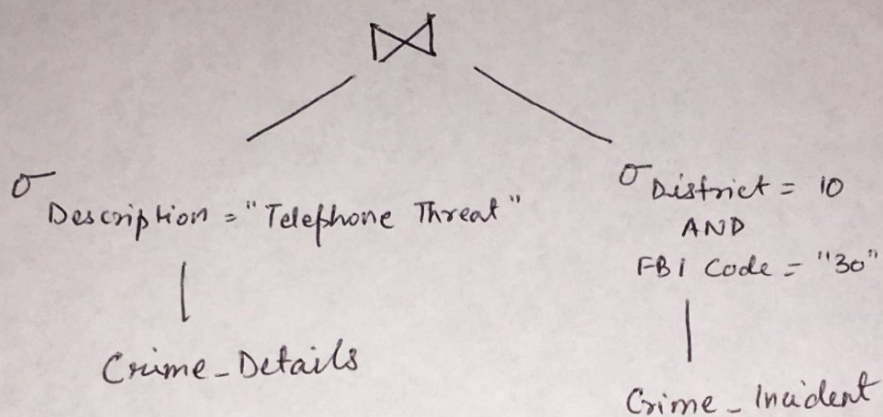 ⋈
σ Description = "Telephone Threat"
Crime_Details
σ District = 10
AND
FBI Code = "30"
Crime_Incident